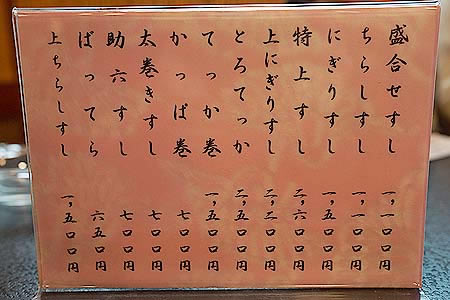 盛合せすし 一,一〇〇円
ちらしすし 一,一〇〇円
にぎりすし 一,五〇〇円
特上すし 二,六〇〇円
上にぎりすし 二,二〇〇円
とろてっか 二,五〇〇円
てっか巻 一,五〇〇円
かっぱ巻 七〇〇円
太巻きすし 七〇〇円
助六すし 七〇〇円
ばってら 六五〇円
上ちらしすし 一,五〇〇円